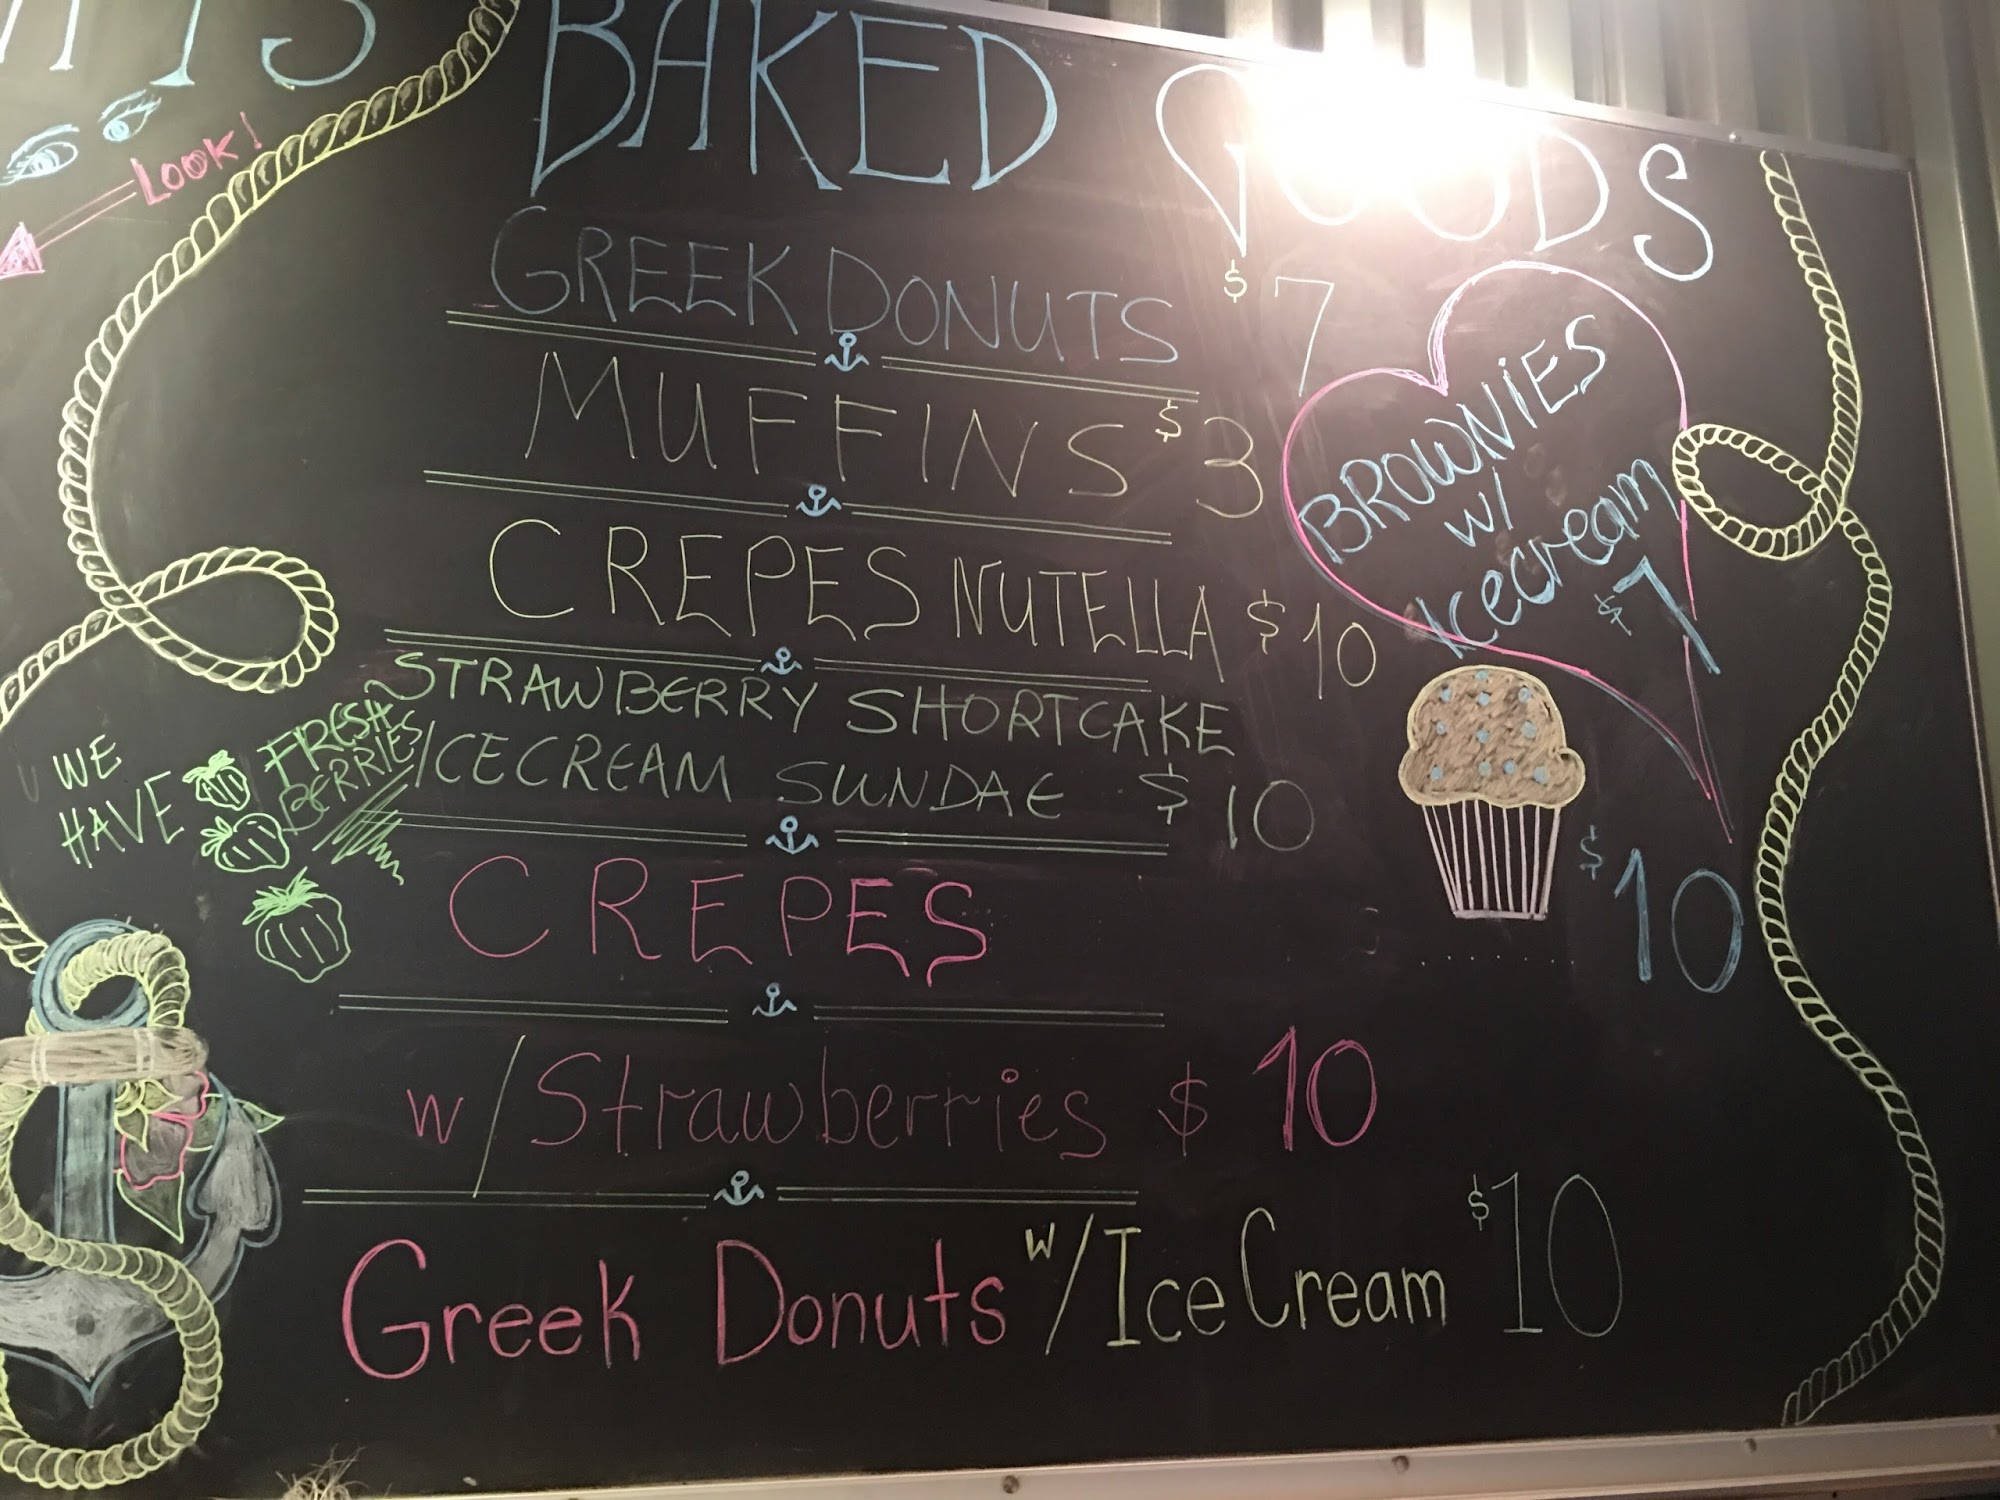 BAKED GOODS
LOOK!
GREEK DONUTS $7
MUFFINS $3
CREPES NUTELLA $10
STRAWBERRY SHORTCAKE
ICECREAM SUNDAE $10
WE HAVE
FRESH
BERRIES
CREPES
$10
w/Strawberries $10
Greek Donuts w/Ice Cream $10
BROWNiES
w/
Icecream
$7